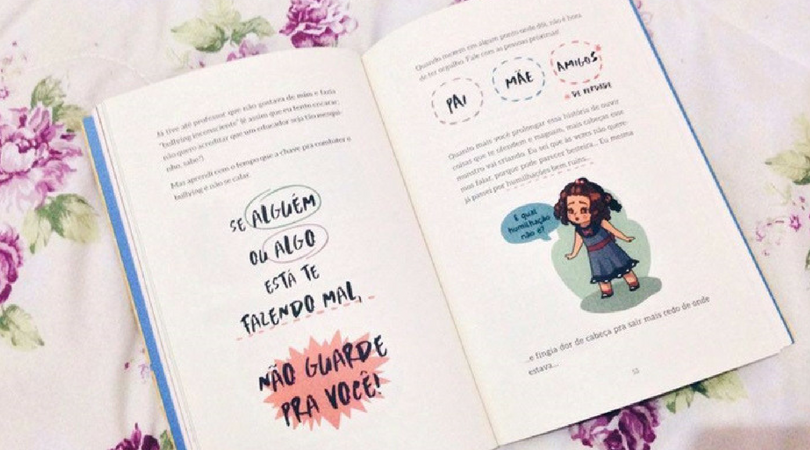 Já tive até professor que não gostava de mim e fazia
"bullying inconsciente" (é assim que eu tento encarar,
não quero acreditar que um educador seja tão mesqui-
nho, sabe?)
Mas aprendi com o tempo que a chave pra combater o
bullying é não se calar.
SE ALGUÉM
OU ALGO
ESTÁ TE
FAZENDO MAL,
NÃO GUARDE
PRA VOCÊ!
Quando mexem em algum ponto onde dói, não é hora
de ter orgulho. Fale com as pessoas próximas!
PAI
MÃE
AMIGOS
DE VERDADE
Quanto mais você prolongar essa história de ouvir
coisas que te ofendem e magoam, mais cabeças esse
monstro vai criando. Eu sei que às vezes não quere-
mos falar, porque pode parecer besteira... Eu mesma
já passei por humilhações bem ruins...
E qual
humilhação
não é?
...e fingia dor de cabeça pra sair mais cedo de onde
estava...
53